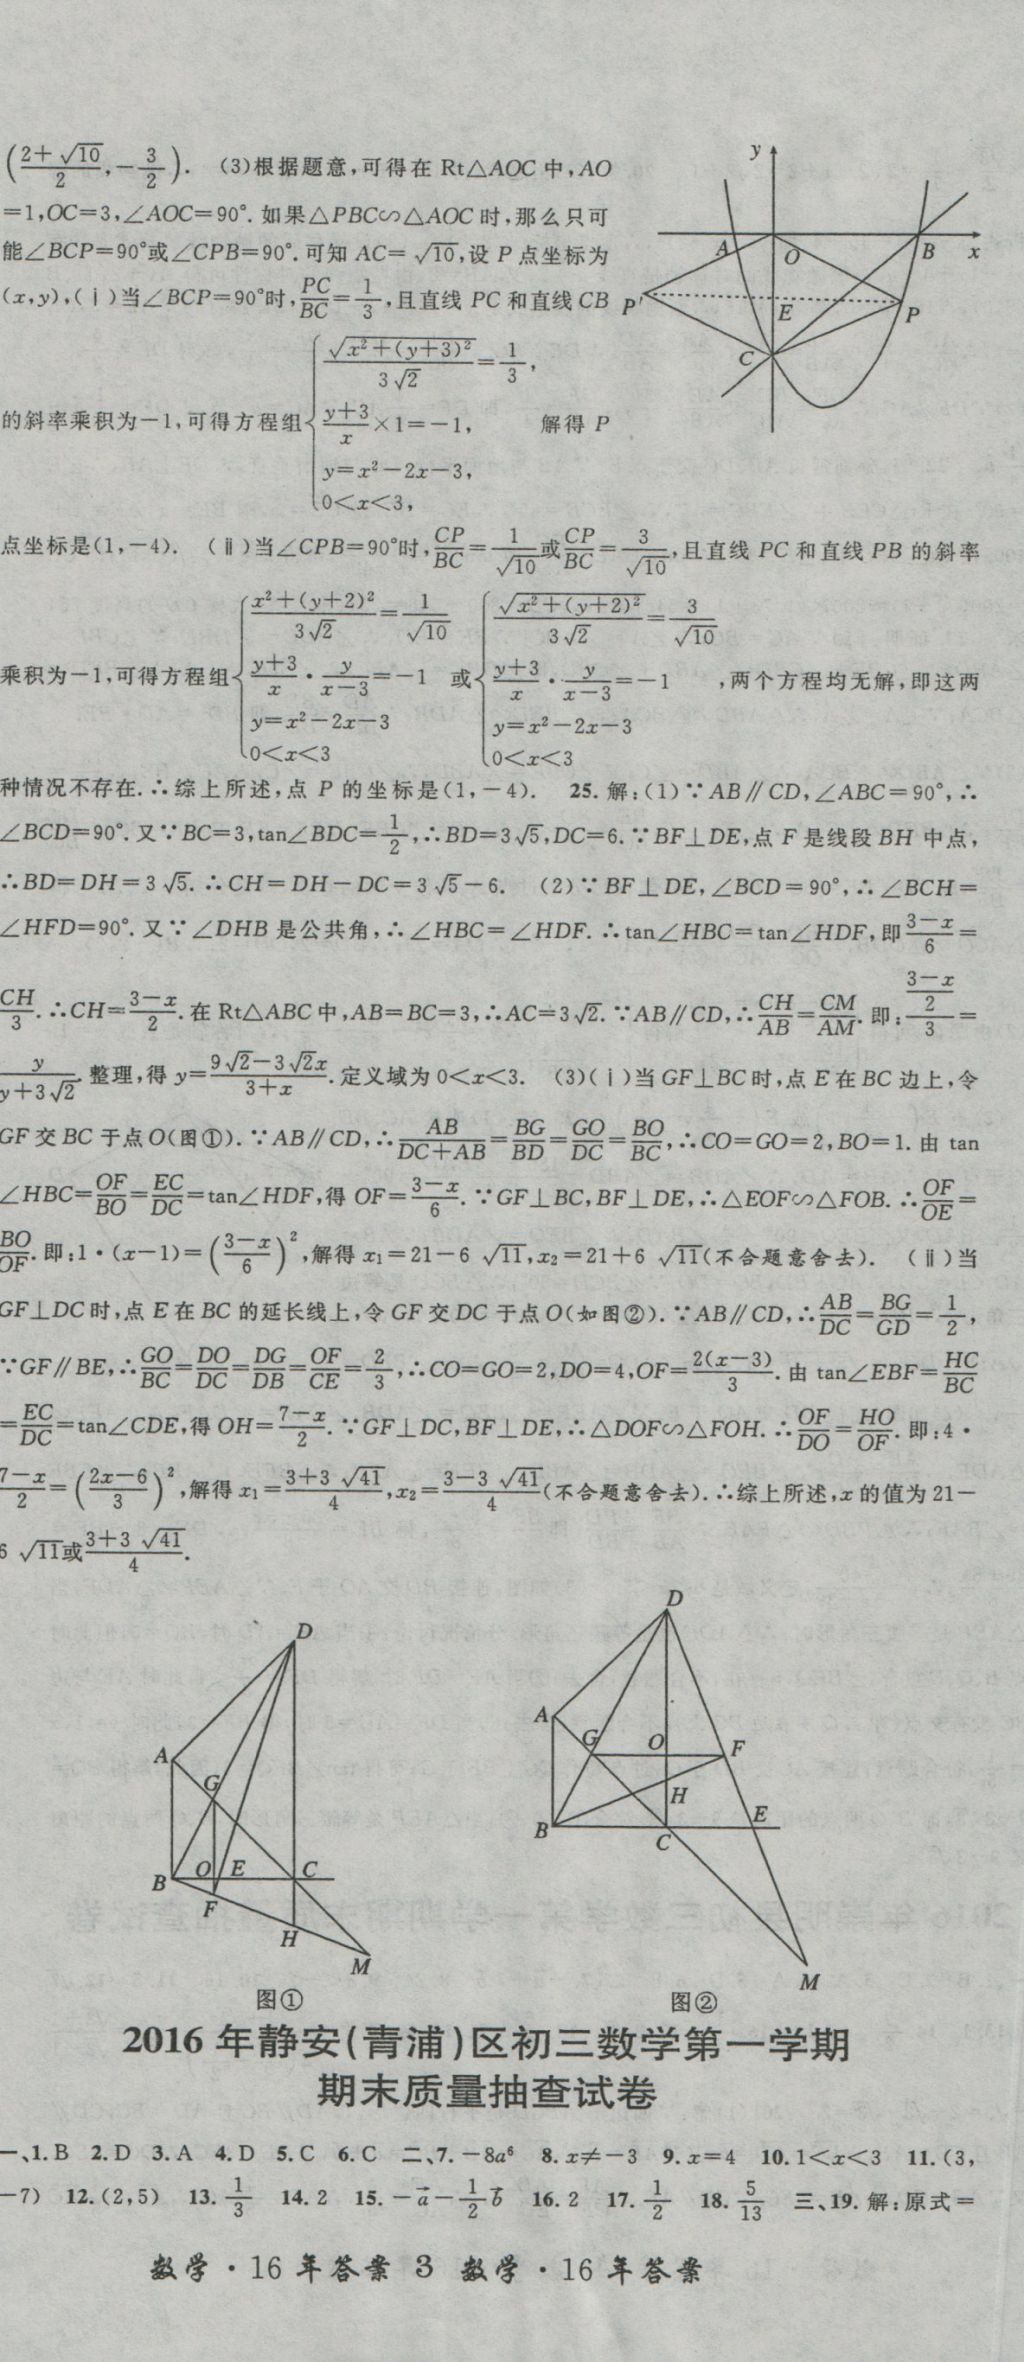 (2+√10/2, -3/2). (3)根据题意,可得在 Rt△AOC 中,AO
=1,OC=3,∠AOC=90°.如果△PBC∽△AOC 时,那么只可
能∠BCP=90°或∠CPB=90°.可知 AC=√10,设 P 点坐标为
(x,y),(ⅰ)当∠BCP=90°时,PC/BC=1/3,且直线 PC 和直线 CB
的斜率乘积为-1,可得方程组{√(x²+(y+3)²)/3√2=1/3, (y+3)/x×1=-1, y=x²-2x-3, 0<x<3, 解得 P
点坐标是(1,-4). (ⅱ)当∠CPB=90°时,CP/BC=1/√10或CP/BC=3/√10,且直线 PC 和直线 PB 的斜率
乘积为-1,可得方程组{(x²+(y+2)²)/3√2=1/√10 (y+3)/x·y/(x-3)=-1 y=x²-2x-3 0<x<3 或{√(x²+(y+2)²)/3√2=3/√10 (y+3)/x·y/(x-3)=-1 y=x²-2x-3 0<x<3 ,两个方程均无解,即这两
种情况不存在.∴综上所述,点 P 的坐标是(1,-4). 25.解:(1)∵AB∥CD,∠ABC=90°,∴
∠BCD=90°.又∵BC=3,tan∠BDC=1/2,∴BD=3√5,DC=6.∵BF⊥DE,点 F 是线段 BH 中点,
∴BD=DH=3√5.∴CH=DH-DC=3√5-6. (2)∵BF⊥DE,∠BCD=90°,∴∠BCH=
∠HFD=90°.又∵∠DHB 是公共角,∴∠HBC=∠HDF.∴tan∠HBC=tan∠HDF,即(3-x)/6=
CH/3.∴CH=(3-x)/2.在 Rt△ABC 中,AB=BC=3,∴AC=3√2.∵AB∥CD,∴CH/AB=CM/AM.即:((3-x)/2)/3=
y/(y+3√2).整理,得 y=(9√2-3√2x)/(3+x).定义域为 0<x<3. (3)(ⅰ)当 GF⊥BC 时,点 E 在 BC 边上,令
GF 交 BC 于点 O(图①).∵AB∥CD,∴AB/(DC+AB)=BG/BD=GO/DC=BO/BC,∴CO=GO=2,BO=1.由 tan
∠HBC=OF/BO=EC/DC=tan∠HDF,得 OF=(3-x)/6.∵GF⊥BC,BF⊥DE,∴△EOF∽△FOB.∴OF/OE=
BO/OF.即:1·(x-1)=((3-x)/6)²,解得 x₁=21-6√11,x₂=21+6√11(不合题意舍去). (ⅱ)当
GF⊥DC 时,点 E 在 BC 的延长线上,令 GF 交 DC 于点 O(如图②).∵AB∥CD,∴AB/DC=BG/GD=1/2,
∵GF∥BE,∴GO/BC=DO/DC=DG/DB=OF/CE=2/3,∴CO=GO=2,DO=4,OF=2(x-3)/3.由 tan∠EBF=HC/BC
=EC/DC=tan∠CDE,得 OH=(7-x)/2.∵GF⊥DC,BF⊥DE,∴△DOF∽△FOH.∴OF/DO=HO/OF.即:4·
(7-x)/2=((2x-6)/3)²,解得 x₁=(3+3√41)/4,x₂=(3-3√41)/4(不合题意舍去).∴综上所述,x 的值为 21-
6√11或(3+3√41)/4.
y
A O B x
P′ E P
C
D
A
G
B O E C
F
H
M
图①
D
A
G O F
H
B C E
M
图②
2016 年静安(青浦)区初三数学第一学期
期末质量抽查试卷
一、1.B 2.D 3.A 4.D 5.C 6.C 二、7.-8a⁶ 8.x≠-3 9.x=4 10.1<x<3 11.(3,
-7) 12.(2,5) 13.1/3 14.2 15.-a⃗-1/2b⃗ 16.2 17.1/2 18.5/13 三、19.解:原式=
数学·16 年答案 3 数学·16 年答案